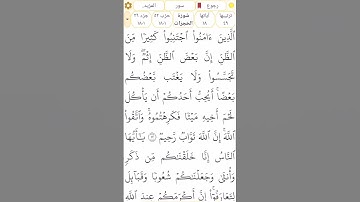 رجوع سور المزيد
ترتيبها آياتها سورة حزب ٥٢ جزء ٢٦
٤٩ ١٨ الحجرات
ٱلَّذِينَ ءَامَنُوا۟ ٱجْتَنِبُوا۟ كَثِيرًا مِّنَ
ٱلظَّنِّ إِنَّ بَعْضَ ٱلظَّنِّ إِثْمٌۖ وَلَا
تَجَسَّسُوا۟ وَلَا يَغْتَب بَّعْضُكُم
بَعْضًاۚ أَيُحِبُّ أَحَدُكُمْ أَن يَأْكُلَ
لَحْمَ أَخِيهِ مَيْتًا فَكَرِهْتُمُوهُۚ وَٱتَّقُوا۟
ٱللَّهَۚ إِنَّ ٱللَّهَ تَوَّابٌ رَّحِيمٌ ١٢ يَـٰٓأَيُّهَا
ٱلنَّاسُ إِنَّا خَلَقْنَـٰكُم مِّن ذَكَرٍ
وَأُنثَىٰ وَجَعَلْنَـٰكُمْ شُعُوبًا وَقَبَآئِلَ
لِتَعَارَفُوٓا۟ۚ إِنَّ أَكْرَمَكُمْ عِندَ ٱللَّهِ